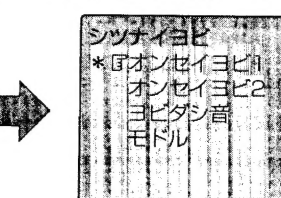 シツナイヨビ
*☞オンセイヨビ1
オンセイヨビ2
ヨビダシ音
モドル